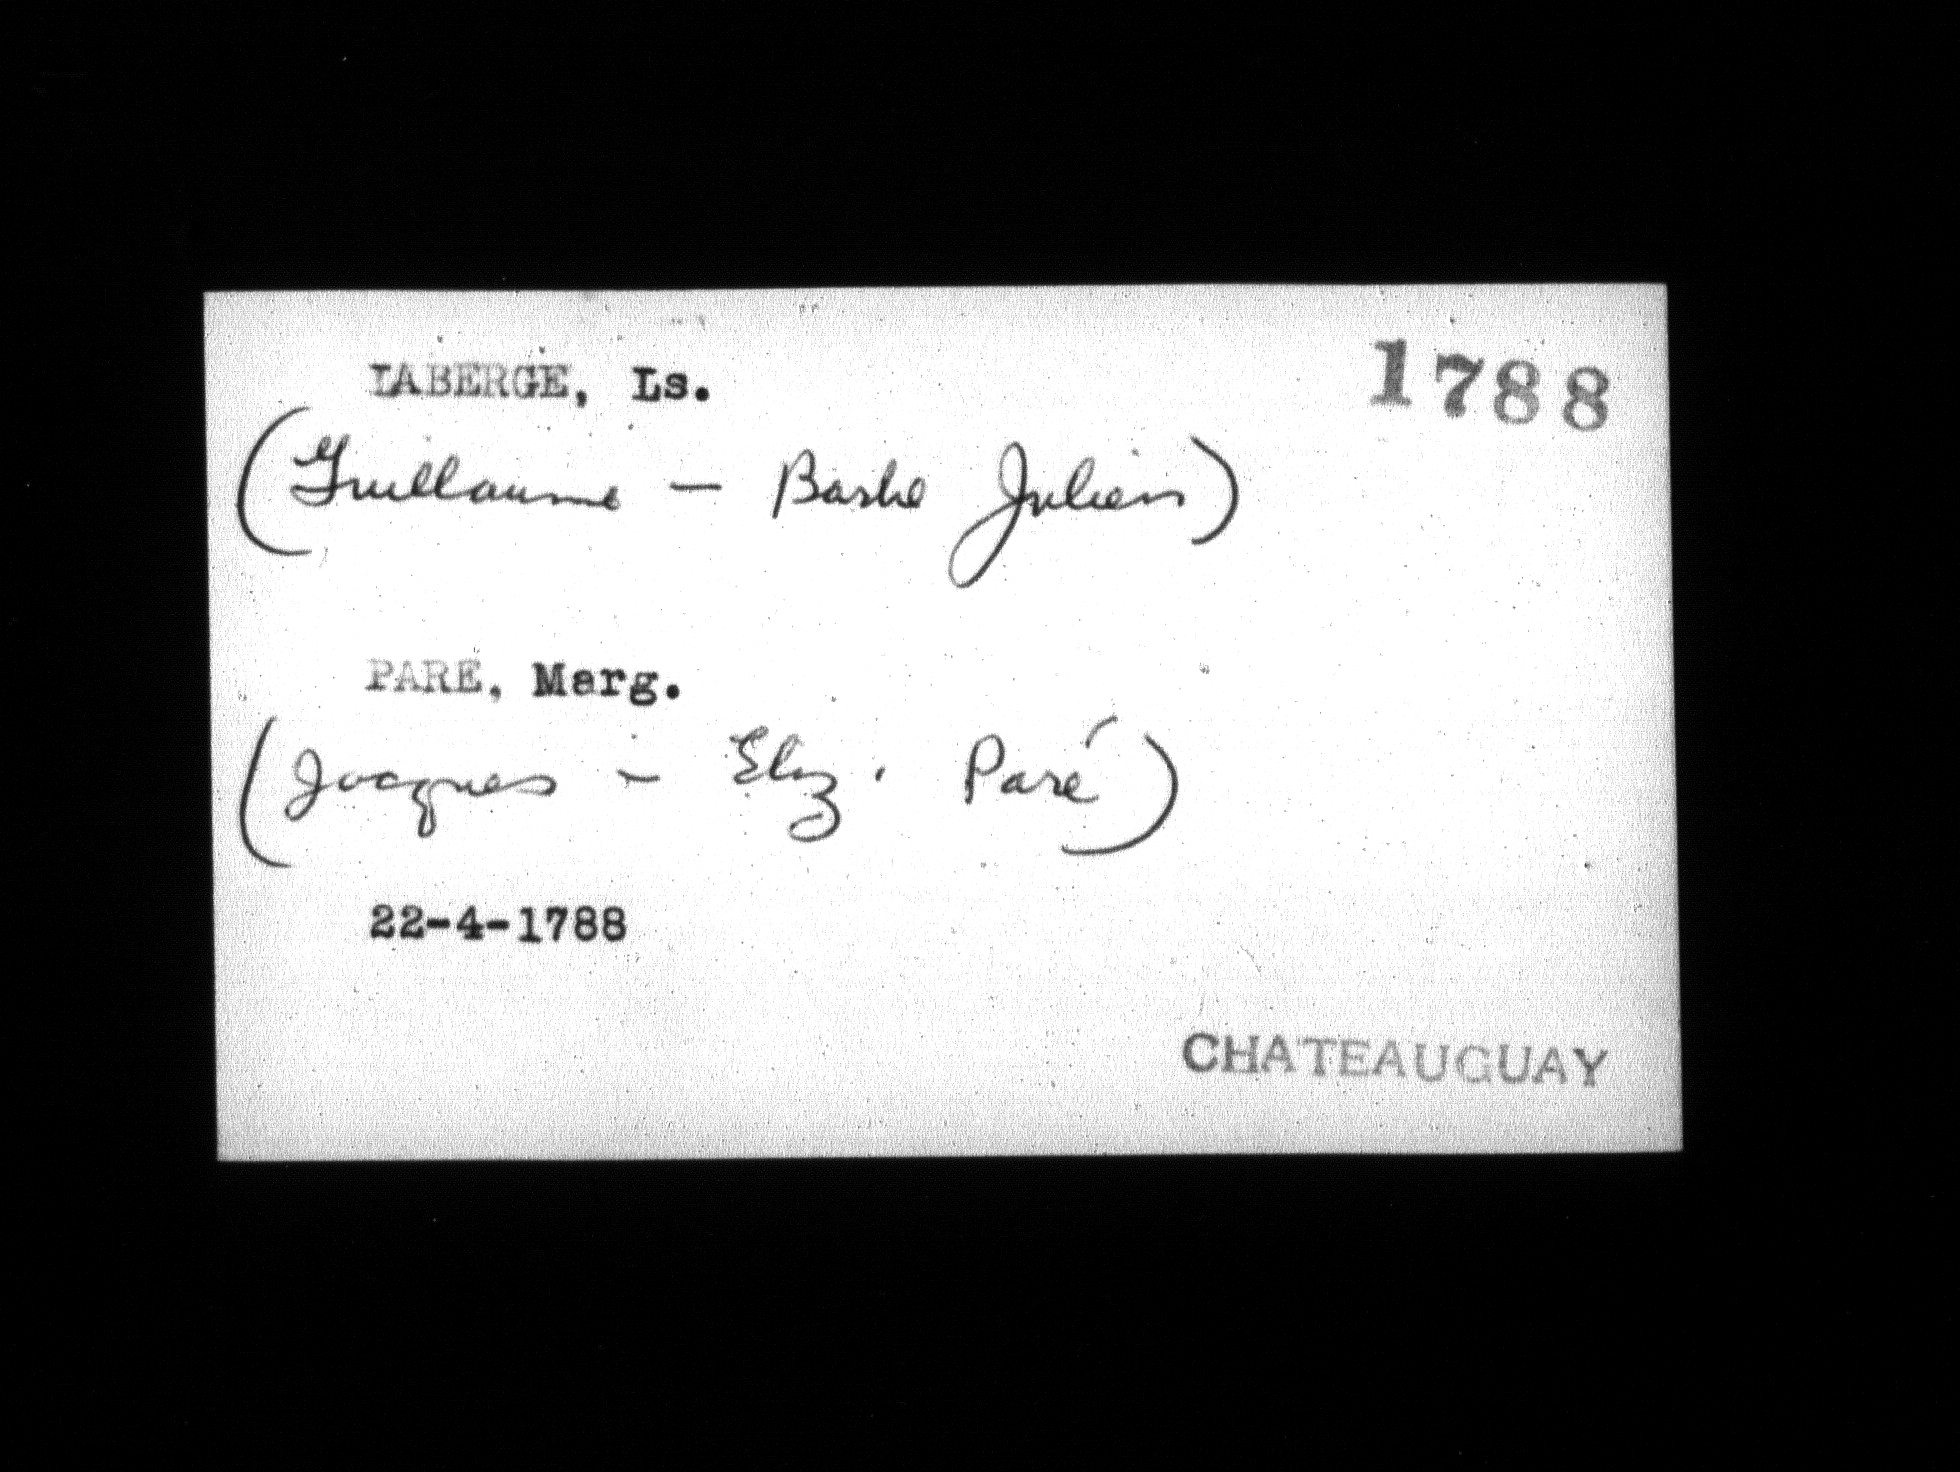 LABERGE, Ls.
1788
(Guillaume - Barbe Julien)
PARE, Marg.
(Jacques - Eliz. Paré)
22-4-1788
CHATEAUGUAY